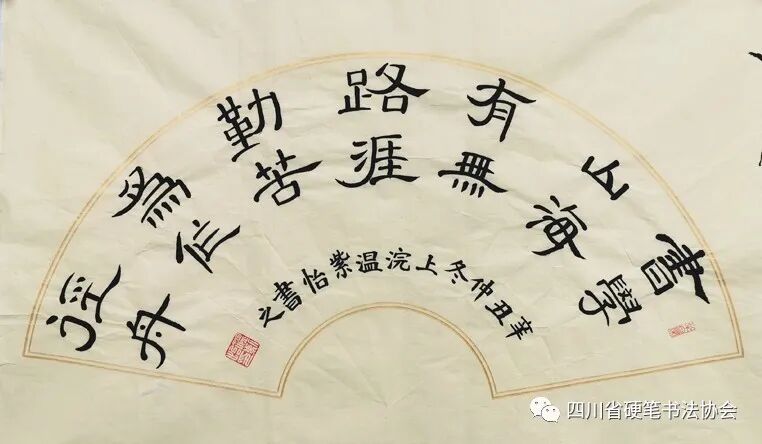 書山有路勤爲徑
學海無涯苦作舟
辛丑仲冬上浣温紫怡書之
四川省硬笔书法协会